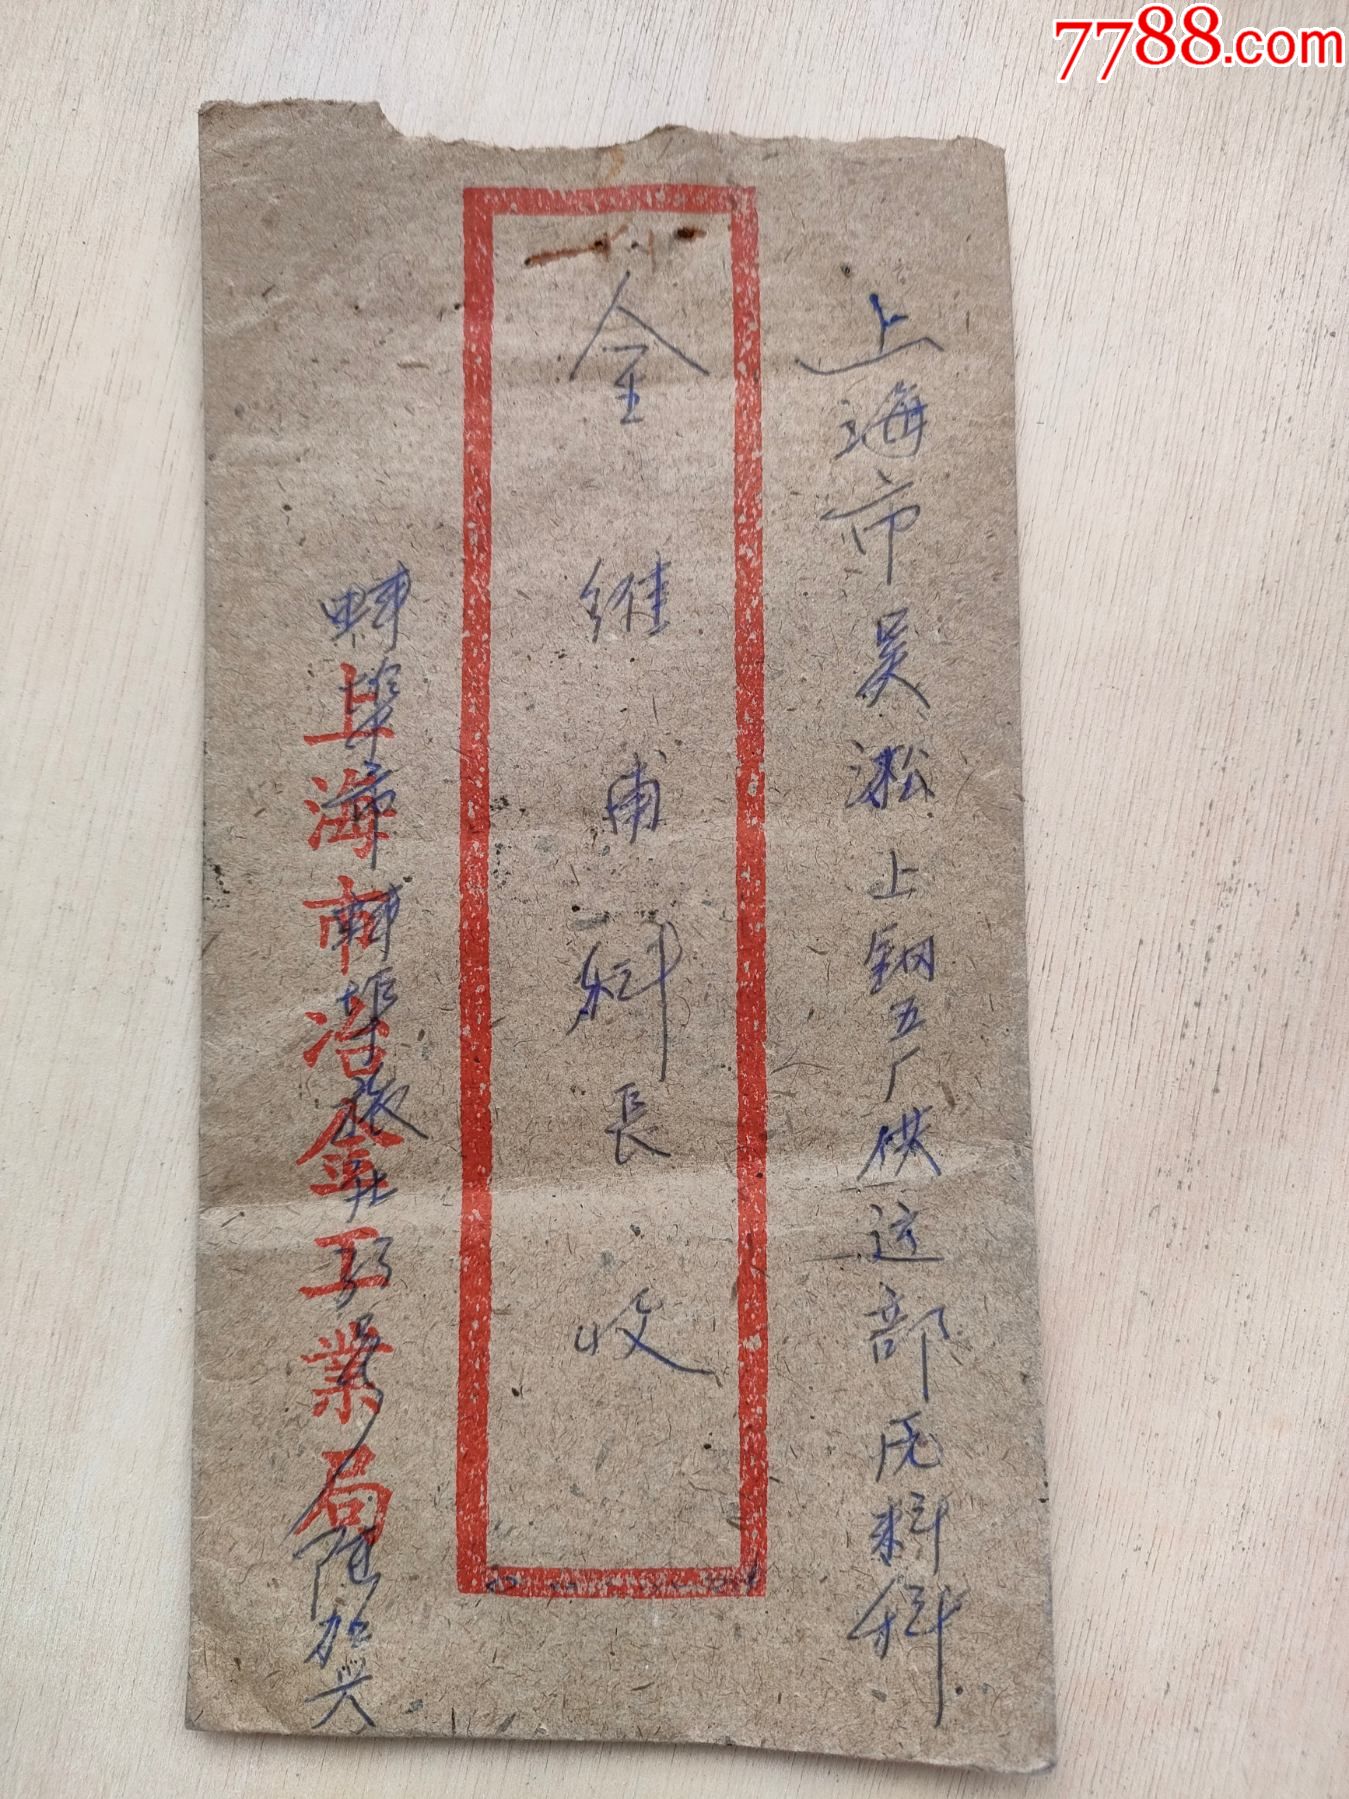 7788.com
上海市吴淞上钢五厂供运部原料科
金维甫科长收
上海市冶金工业局
蚌埠市蚌埠